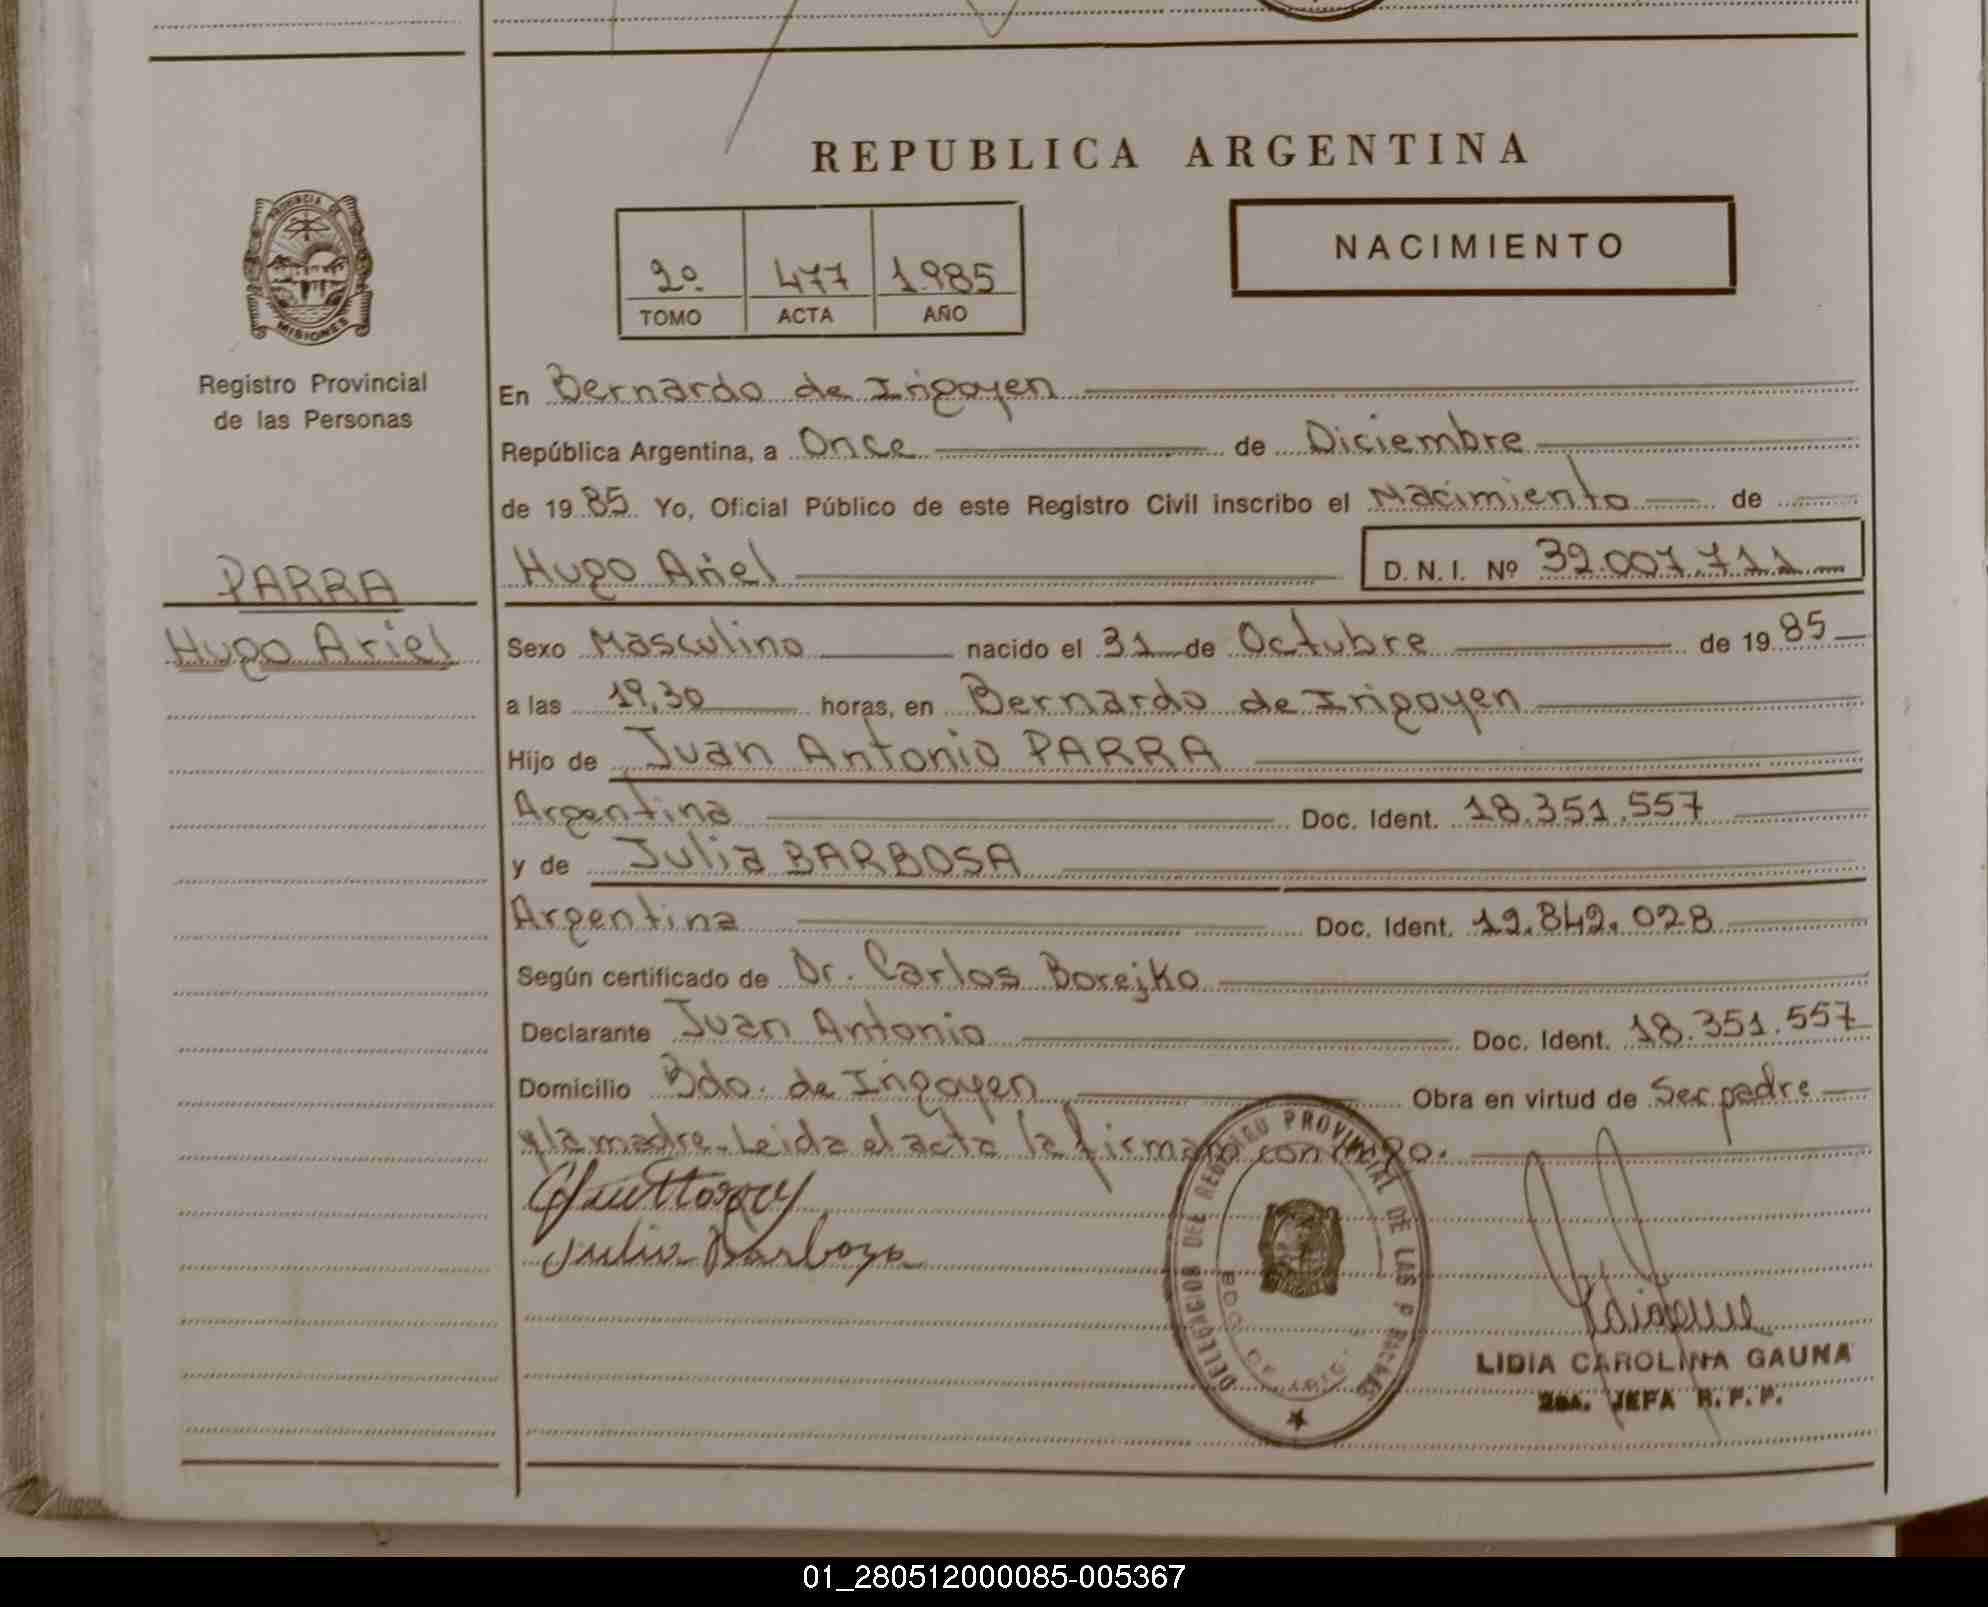 REPUBLICA ARGENTINA
PROVINCIA DE
MISIONES
Registro Provincial
de las Personas
2º 477 1.985
TOMO ACTA AÑO
NACIMIENTO
En Bernardo de Irigoyen
República Argentina, a Once de Diciembre
de 1985 Yo, Oficial Público de este Registro Civil inscribo el Nacimiento de
PARRA
Hugo Ariel
Hugo Ariel D. N. I. Nº 32.007.711
Sexo Masculino nacido el 31 de Octubre de 1985
a las 19,30 horas, en Bernardo de Irigoyen
Hijo de Juan Antonio PARRA
Argentina Doc. Ident. 18.351.557
y de Julia BARBOSA
Argentina Doc. Ident. 12.842.028
Según certificado de Dr. Carlos Borejko
Declarante Juan Antonio Doc. Ident. 18.351.557
Domicilio Bdo. de Irigoyen Obra en virtud de Ser padre
y la madre. Leida el acta la firman conmigo.
Julia Barboza
DELEGACION DEL REGISTRO PROVINCIAL DE LAS PERSONAS
BDO. DE IRIG.
LIDIA CAROLINA GAUNA
2da. JEFA R. P. P.
01_280512000085-005367